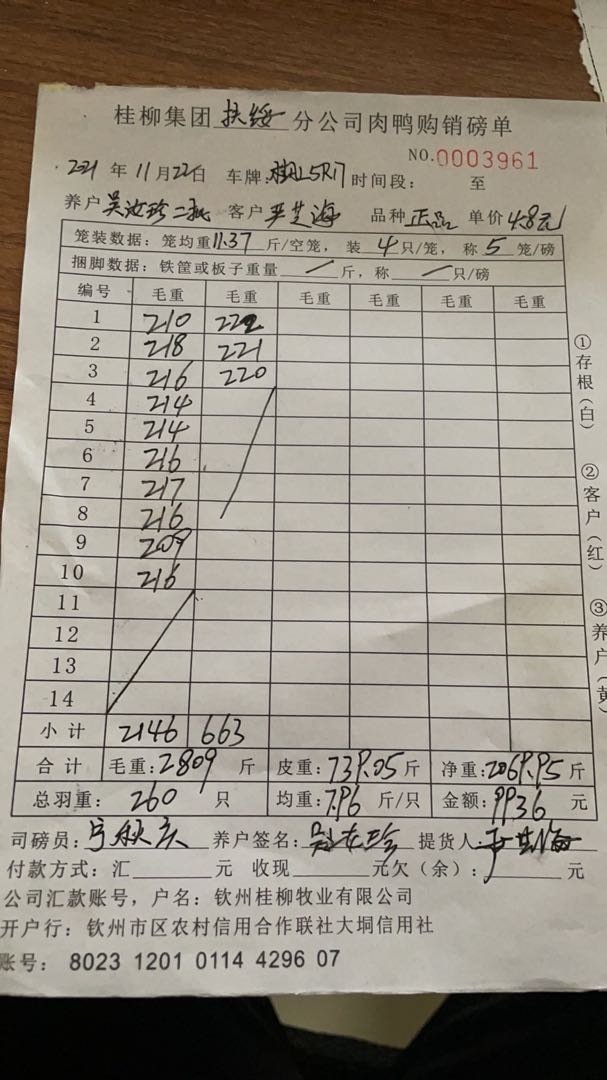 桂柳集团扶绥分公司肉鸭购销磅单
NO.0003961
2021年11月22日 车牌: L5R17 时间段: 至
养户吴汝珍二批 客户 芝海 品种正品 单价4.8元
笼装数据: 笼均重11.37斤/空笼, 装4只/笼, 称5笼/磅
捆脚数据: 铁筐或板子重量/斤, 称/只/磅
编号 毛重 毛重 毛重 毛重 毛重 毛重
1 210 222
2 218 221
3 216 220
4 214
5 214
6 216
7 217
8 216
9 209
10 216
11
12
13
14
小计 2146 663
合计 毛重:2809斤 皮重:739.05斤 净重:2069.95斤
总羽重: 260 只 均重:7.96斤/只 金额:9936元
司磅员: 养户签名:吴汝珍 提货人:
付款方式: 汇 元 收现 元欠(余): 元
公司汇款账号, 户名: 钦州桂柳牧业有限公司
开户行: 钦州市区农村信用合作联社大垌信用社
账号: 8023 1201 0114 4296 07
①存根(白)
②客户(红)
③养户(黄)